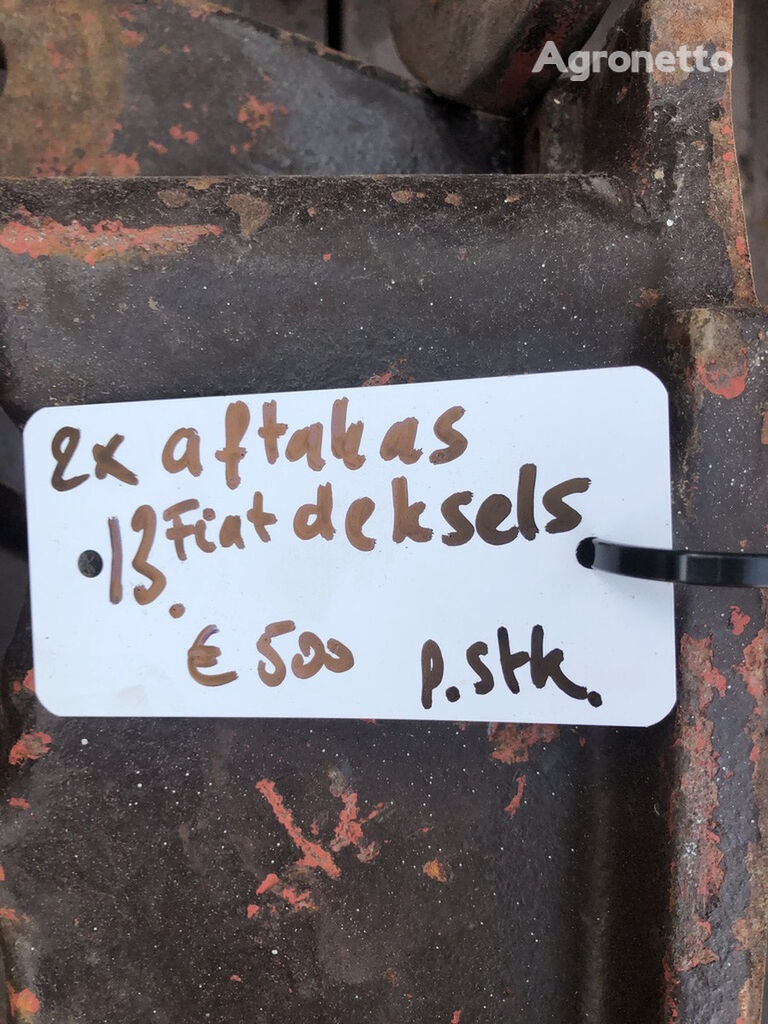 Agronetto
2x aftakas
13. Fiat deksels
€ 500 p.stk.